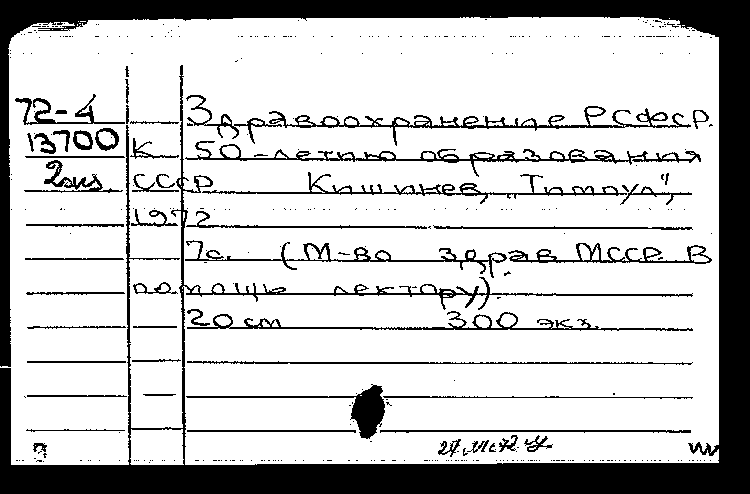 72-4 Здравоохранение РСФСР.
13700 К 50-летию образования
2экз. СССР Кишинев, „Тимпул",
1972
7с. (М-во здрав МССР. В
помощь лектору).
20 см 300 экз.